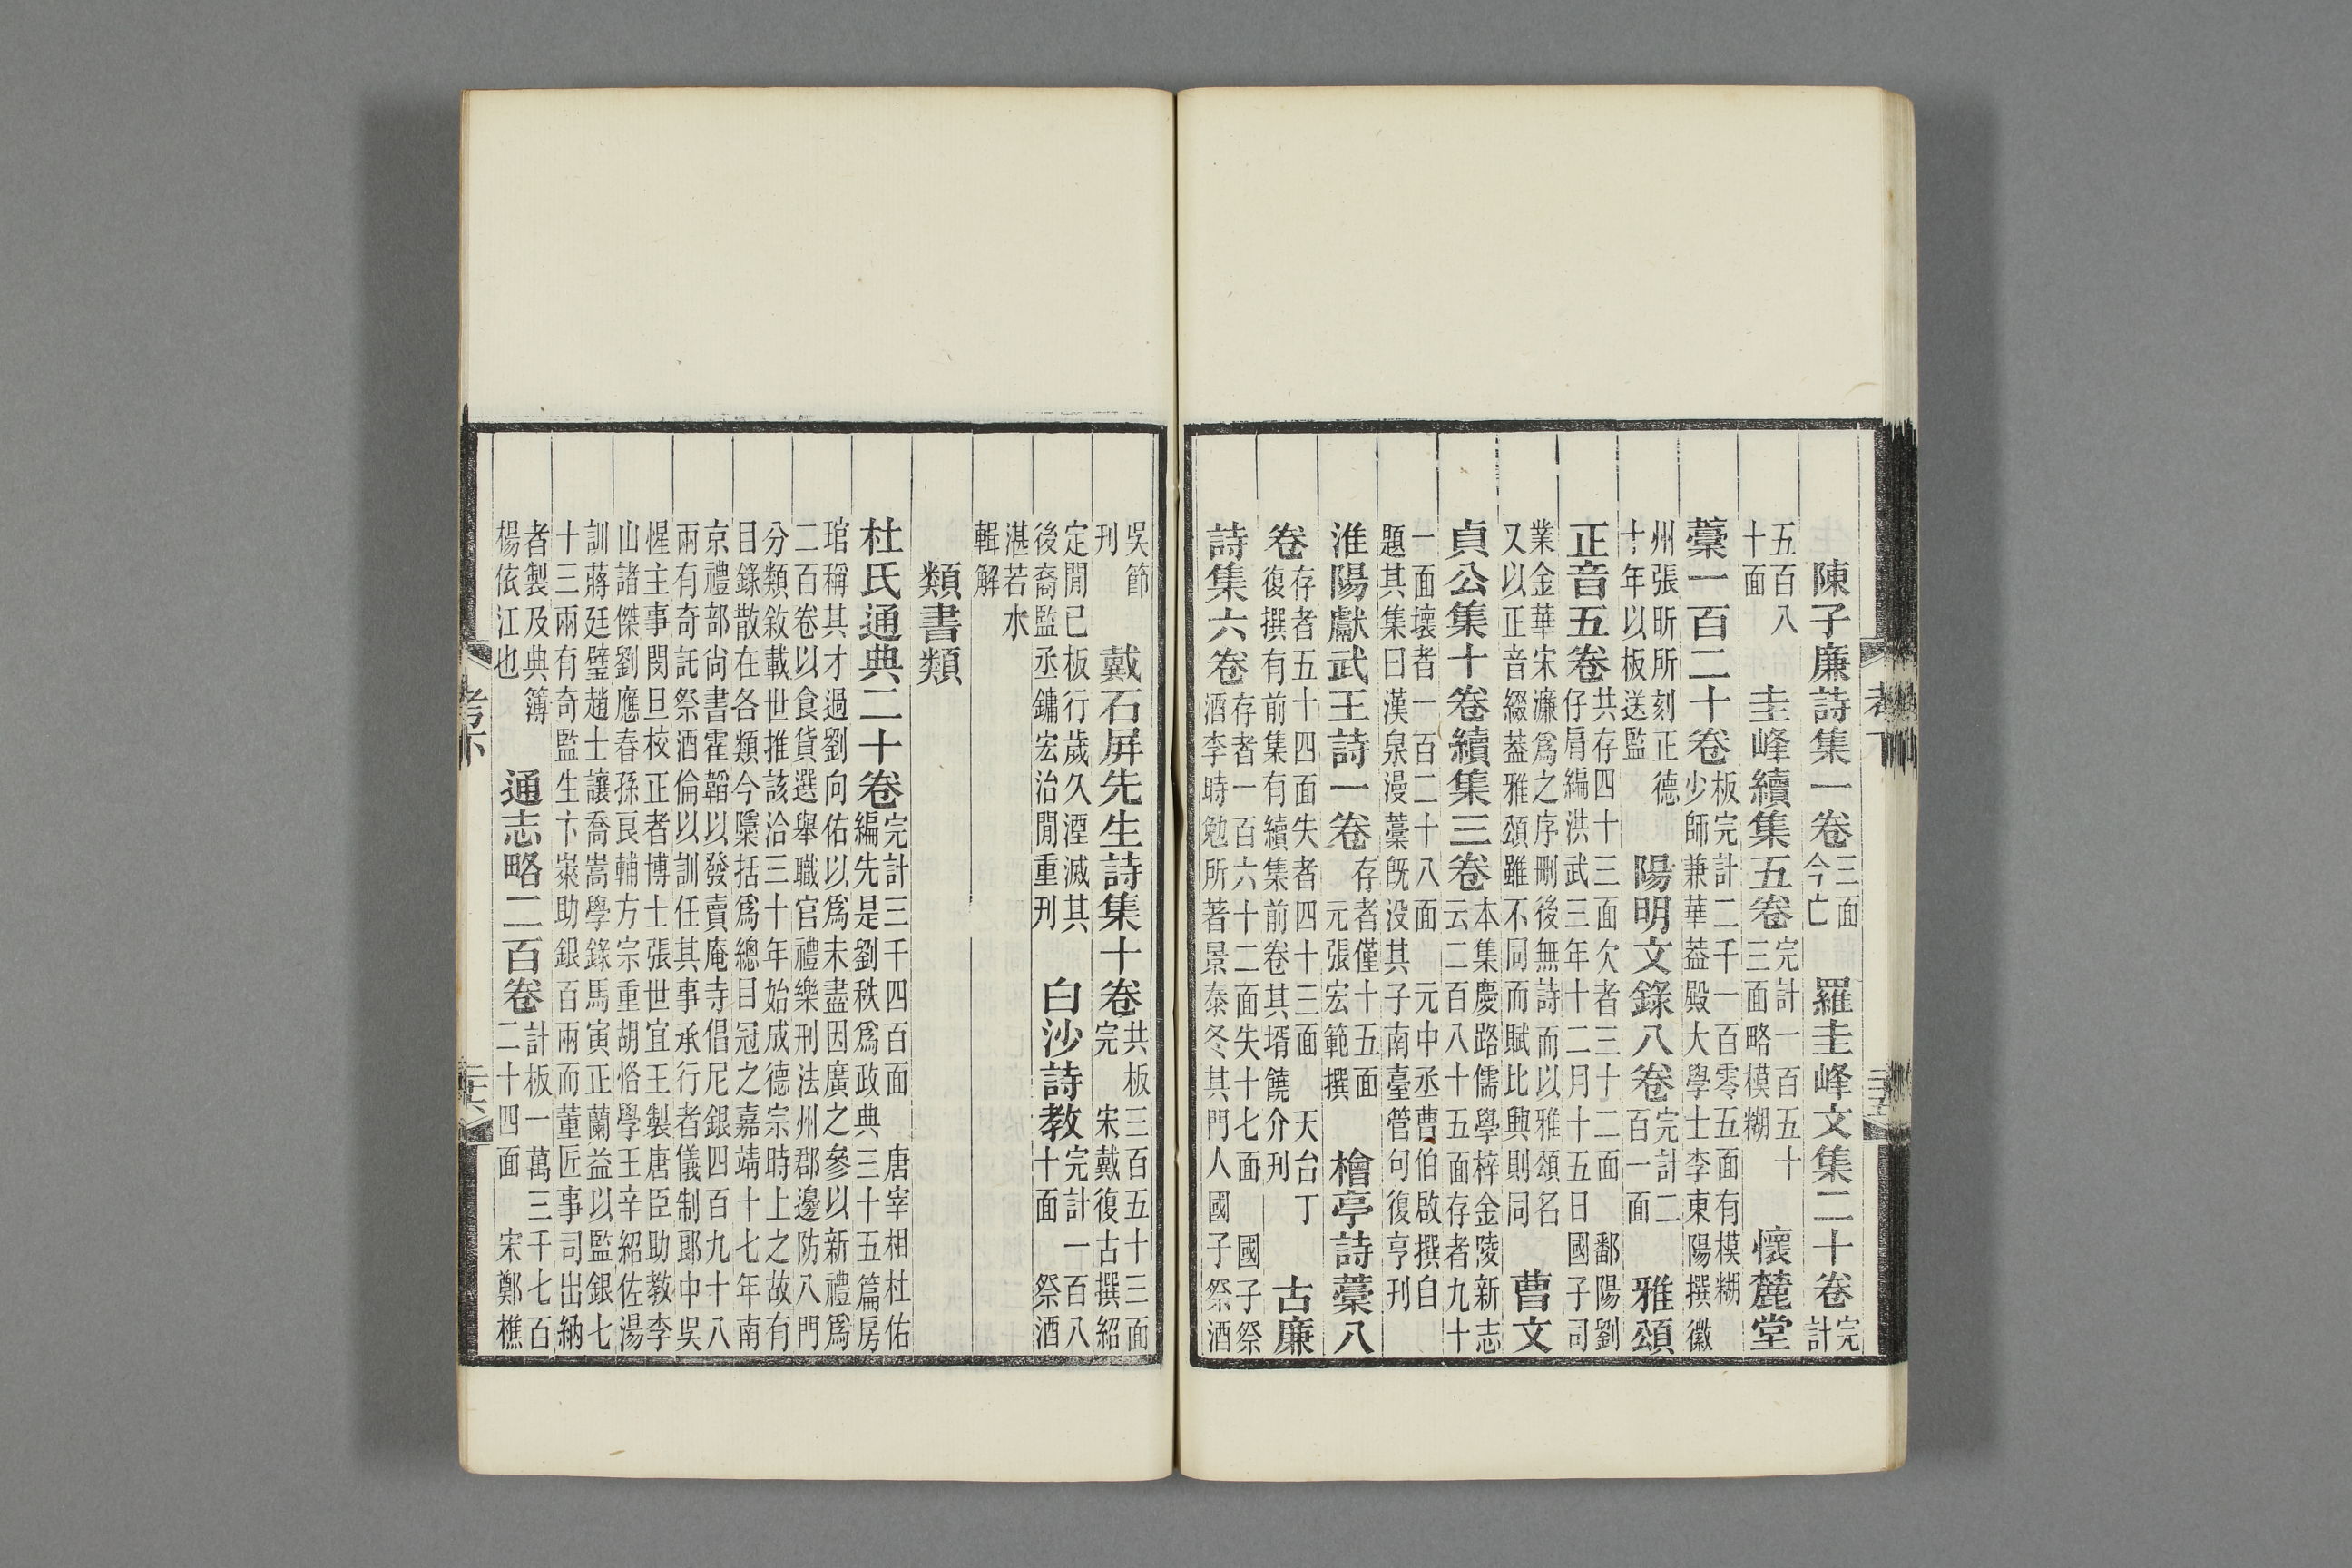 陳子廉詩集一卷三面今亡　羅圭峰文集二十卷完計
五百八十面　圭峰續集五卷完計一百五十三面略模糊　懷麓堂
藁一百二十卷板完計二千一百零五面有模糊少師兼華葢殿大學士李東陽撰徽
州張昕所刻正德十年以板送監　陽明文錄八卷完計二百一面　雅頌
正音五卷共存四十三面欠者三十二面　鄱陽劉仔肩編洪武三年十二月十五日國子司
業金華宋濂爲之序刪後無詩而以雅頌名又以正音綴葢雅頌雖不同而賦比興則同　曹文
貞公集十卷續集三卷本集慶路儒學梓金陵新志云二百八十五面存者九十
一面壞者一百二十八面　元中丞曹伯啟撰自題其集曰漢泉漫藁旣没其子南臺管勾復亨刊
淮陽獻武王詩一卷存者僅十五面元張宏範撰　檜亭詩藁八
卷存者五十四面失者四十三面　天台丁復撰有前集有續集前卷其壻饒介刊　古廉
詩集六卷存者一百六十二面失十七面　國子祭酒李時勉所著景泰冬其門人國子祭酒
考下
三十五
吳節刊　戴石屏先生詩集十卷共板三百五十三面完　宋戴復古撰紹
定閒已板行歲久湮滅其後裔監丞鏞宏治閒重刊　白沙詩教完計一百八十面　祭酒
湛若水輯解
類書類
杜氏通典二十卷完計三千四百面　唐宰相杜佑編先是劉秩爲政典三十五篇房
琯稱其才過劉向佑以爲未盡因廣之參以新禮爲二百卷以食貨選舉職官禮樂刑法州郡邊防八門
分類敘載世推該洽三十年始成德宗時上之故有目錄散在各類今檃括爲總目冠之嘉靖十七年南
京禮部尙書霍韜以發賣庵寺倡尼銀四百九十八兩有奇託祭酒倫以訓任其事承行者儀制郎中吳
惺主事閔旦校正者博士張世宜王製唐臣助教李山諸傑劉應春孫良輔方宗重胡恪學王辛紹佐湯
訓蔣廷璧趙士讓喬嵩學錄馬寅正蘭益以監銀七十三兩有奇監生卞崁助銀百兩而董匠事司出納
者製及典簿楊依江也　通志略二百卷計板一萬三千七百二十四面　宋鄭樵
考下
三十六